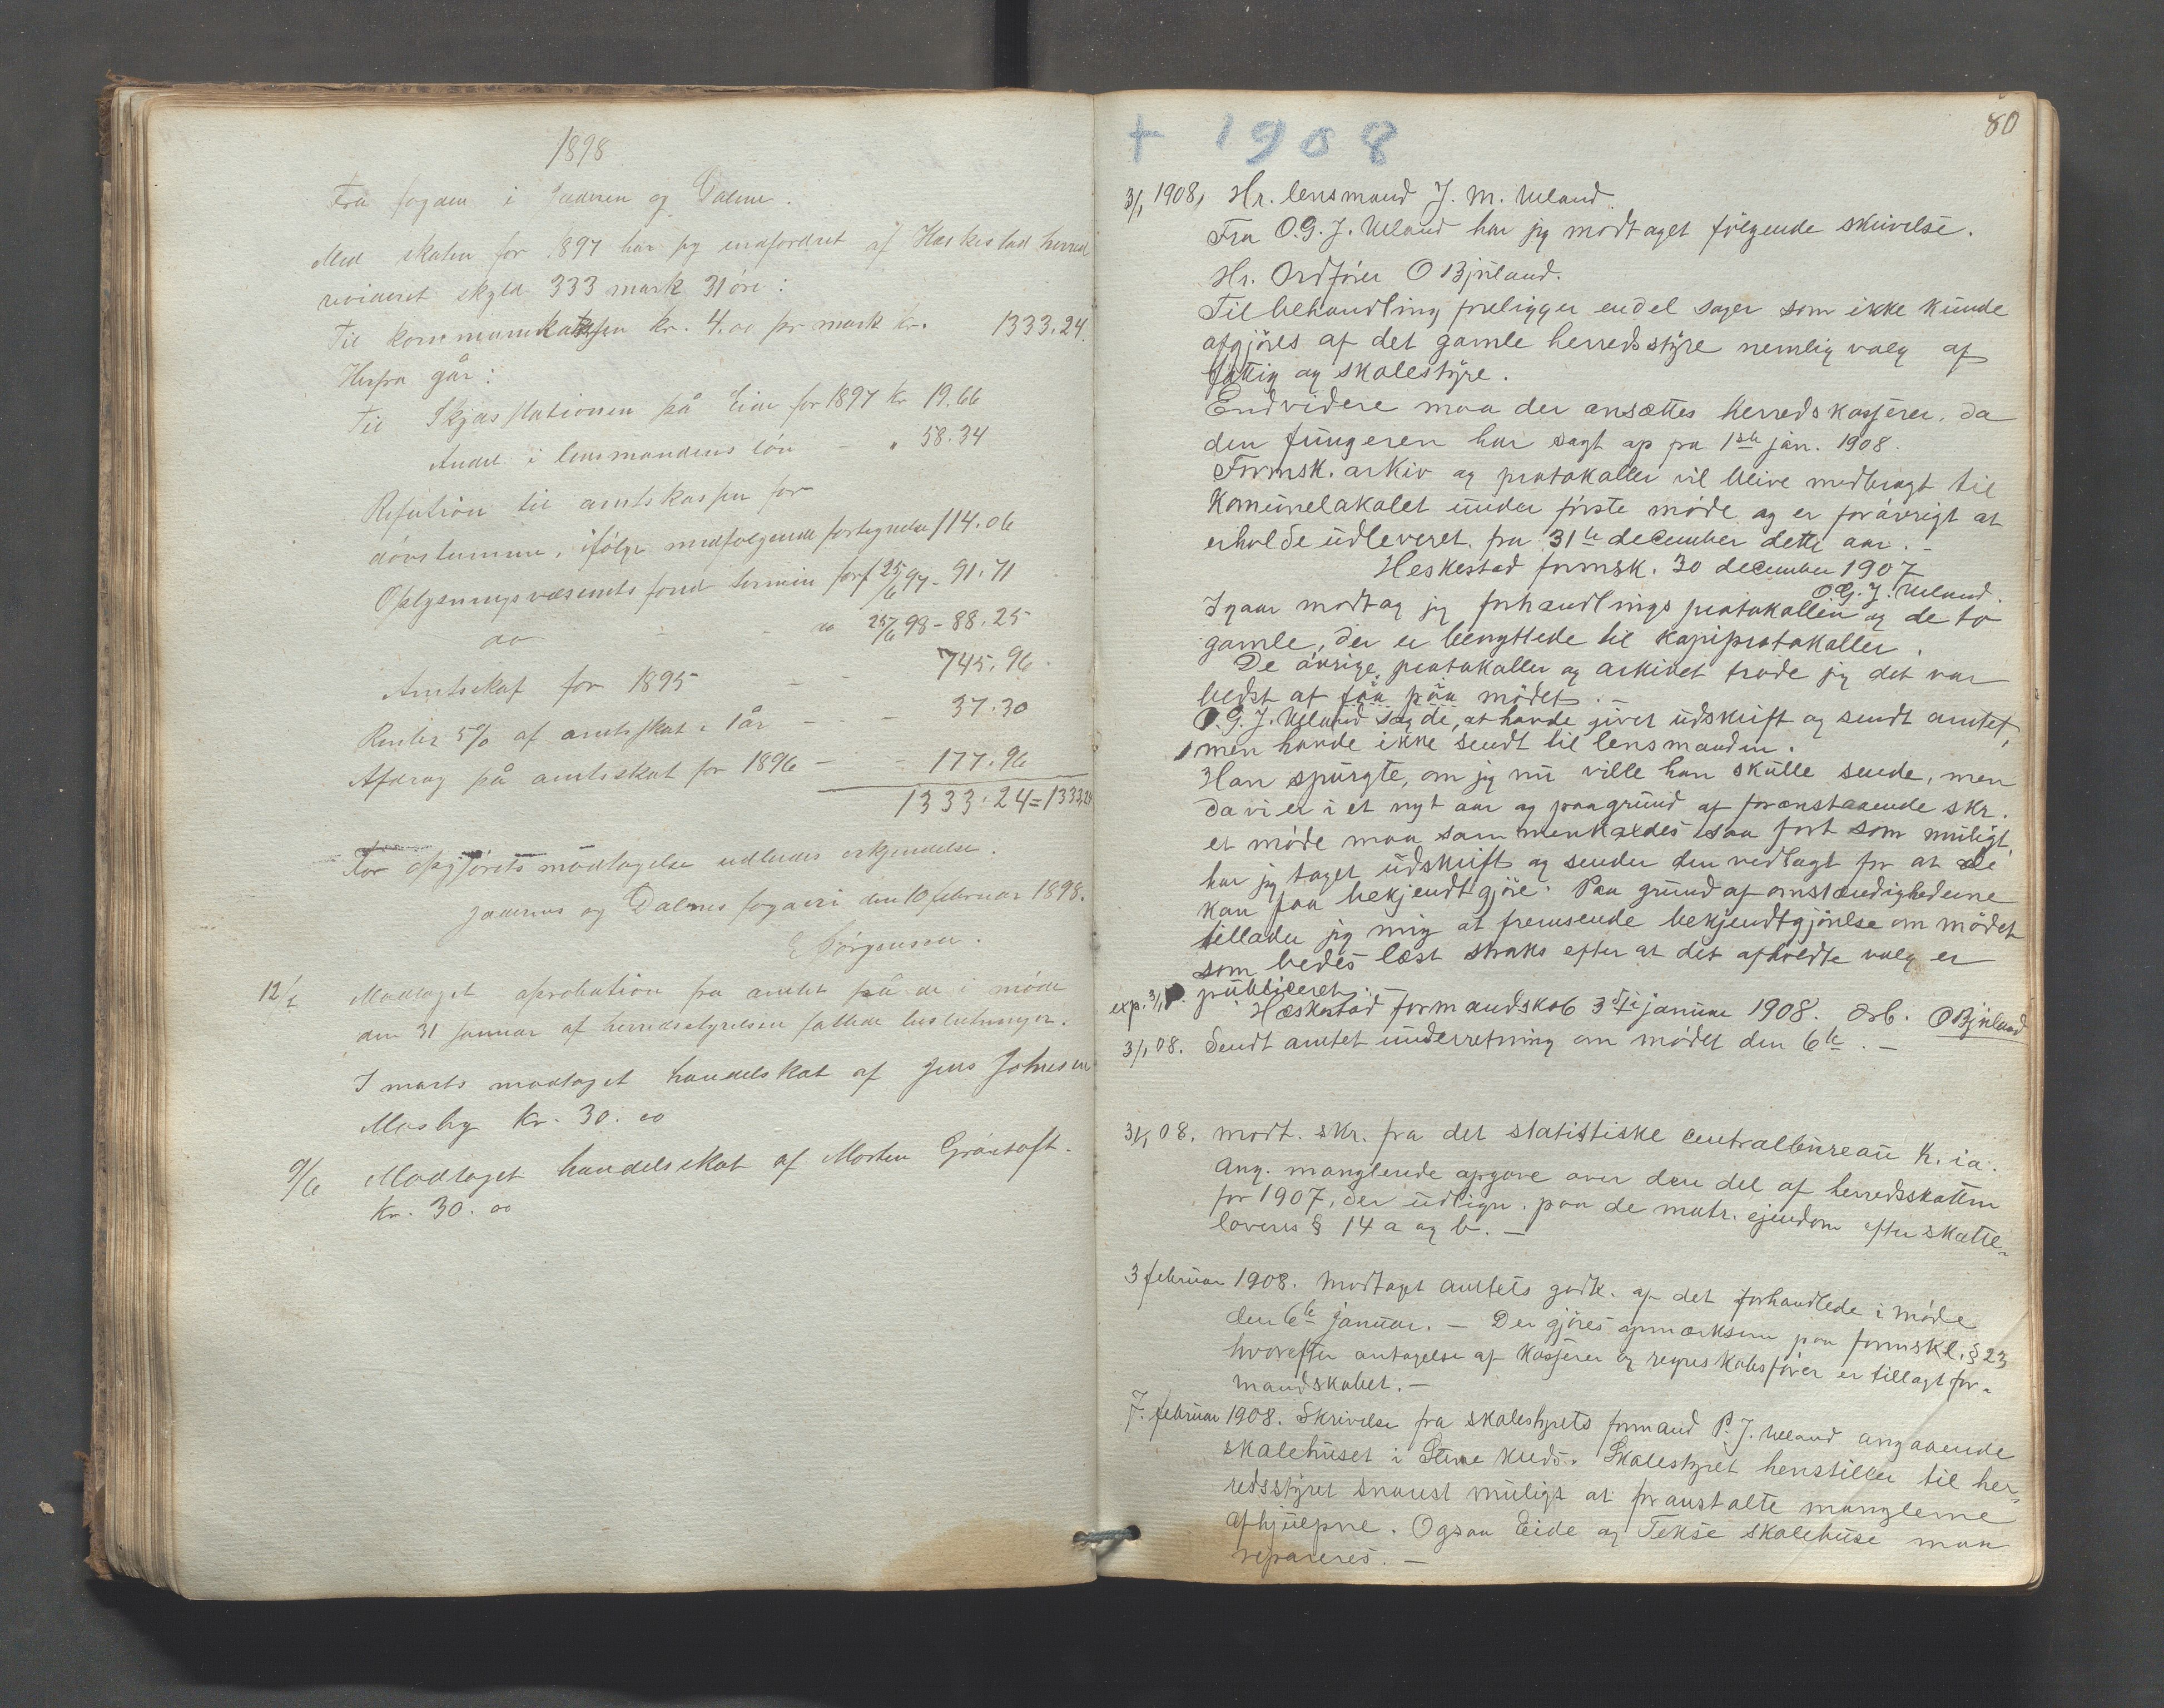 1898
Fra fogden i Jæderen og Dalene.
Med skaten for 1897 har jeg indfordret af Heskestad herred
revideret skyld 333 mark 31 øre:
Til kommunekassen kr. 4.00 pr mark kr. 1333.24
Herfra går:
Til Skjøsstationen på Eide for 1897 kr 19.66
Andel i lensmandens løn - " 58.34
Refution til amtskassen for
døvstumme, ifølge medfølgende fortegnelse 114.06
Oplysningsvæsenets fond termin for 25/6 97 - 91.71
do - - do 25/6 98 - 88.25
Amtskat for 1895 - - 745.96
Renter 5% af amtsskat 1 år - - - 37.30
Afdrag på amtsskat for 1896 - - 177.96
1333.24 = 1333.24
For opgjørets modtagelse udbedes erkjendelse.
Jæderens og Dalenes fogderi den 10 februar 1898.
E Jørgensen.
12/2 Modtaget aprobation fra amtet på de i møde
den 31 januar af herredsstyrelsen fattede beslutninger.
I marts modtaget handelskat af Jens Johnsen
Mosby kr. 30.00
9/6 Modtaget handelsskat af Morten Grøntoft.
Kr. 30.00
80
+ 1908
3/1 1908, Hr. lensmand J. M. Ueland.
Fra O.G.J. Ueland har jeg modtaget følgende skrivelse.
Hr. Ordfører O Bjuland.
Til behandling foreligger endel sager som ikke kunde
afgjøres af det gamle herredsstyre nemlig valg af
fattig og skolestyre.
Endvidere maa der ansættes herredskasserer, da
den fungeren har sagt op fra 1ste jan. 1908.
Formsk. arkiv og protokoller vil blive medbragt til
Komunelokalet under første møde og er forøvrigt at
erholde udleveret fra 31te december dette aar. -
Heskestad formsk. 30 december 1907
O.G.J. Ueland.
Igaar modtog jeg forhandlings protokollen og de to
gamle, der er benyttede til kopiprotokoller.
De øvrige protokoller og arkivet trode jeg det var
bedst at faa paa mødet. -
O.G.J. Ueland sagde, at havde givet udskrift og sendt amtet,
men havde ikke sendt til lensmanden.
Han spurgte, om jeg nu ville han skulle sende, men
da vi er i et nyt aar og paagrund af foranstaaende skr.
et møde maa sammenkaldes saa fort som muligt,
har jeg taget udskrift og sender den vedlagt for at de
kan faa bekjendtgjøre. Paa grund af omstændighederne
tillader jeg mig at fremsende bekjendtgjørelse om mødet
som bedes læst straks efter at det afholdte valg er
exp. 3/1 publiceret. -
Heskestad formandskab 3die januar 1908. Ærb. O Bjuland
3/1 08. Sendt amtet underretning om mødet den 6te. -
3/1 08. modt. skr. fra det statistiske centralbureau K.ia.
ang. manglende opgave over den del af herredsskatten
for 1907, der udlign. paa de matr. ejendom efter skatte-
lovens § 14 a og b. -
3 februar 1908. Modtaget amtets godk. af det forhandlede i møde
den 6te januar. - Der gjøres opmærksom paa formskl. § 23
hvorefter antagelse af kasserer og regnskabsfører er tillagt for-
mandskabet. -
7. februar 1908. Skrivelse fra skolestyrets formand P. J. Ueland angaaende
skolehuset i kreds. Skolestyret henstiller til her-
redsstyret snarest muligt at foranstalte manglerne
afhjulpne. Ogsaa Eide og Tekse skolehuse maa
repareres. -